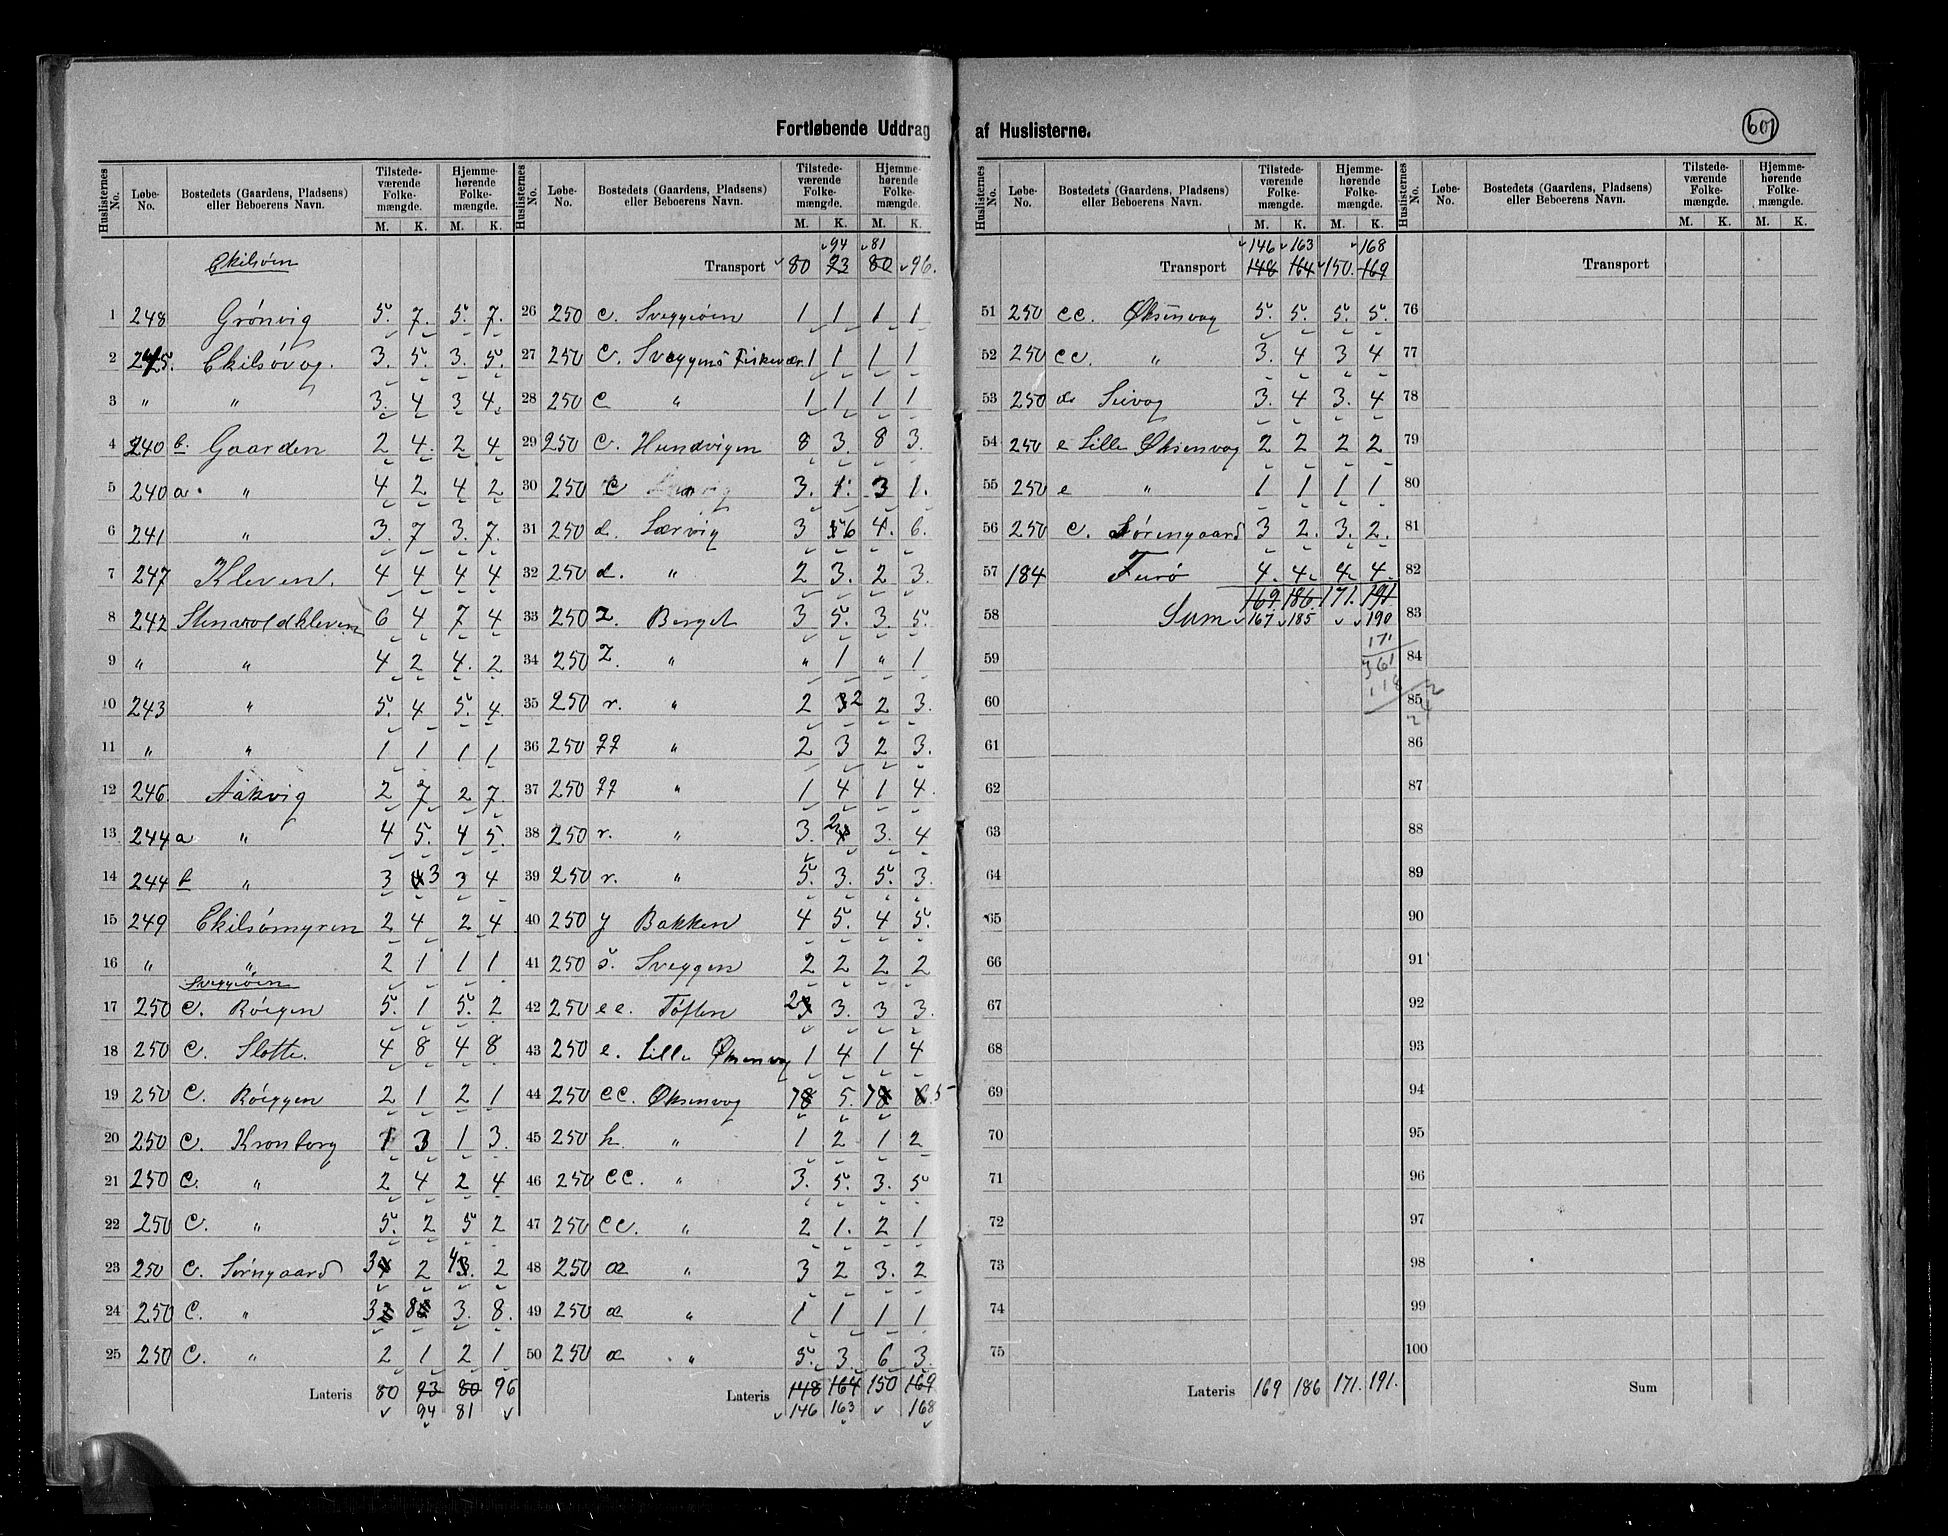 Fortløbende Uddrag af Huslisterne.
601
Huslisternes No. Løbe-No. Bostedets (Gaardens, Pladsens) eller Beboerens Navn. Tilstedeværende Folkemængde. M. K. Hjemmehørende Folkemængde. M. K.
Ekilsöen
1 248 Grönvig 5. 7. 5. 7.
2 245. Ekilsövog. 3. 5. 3. 5.
3 " " 3. 4 3 4.
4 240 b. Gaarden 2 4. 2 4
5 240 a. " 4 2 4 2
6 241 " 3. 7 3. 7.
7 247 Kleven. 4 4 4 4
8 242 Stenvoldkleven 6 4 7 4
9 " " 4 2 4. 2
10 243 " 5. 4 5. 4.
11 " " 1 1 1 1
12 246. Aakvig 2 7 2 7.
13 244 a " 4 5. 4 5.
14 244 b " 3 4 3 3 4
15 249 Ekilsömyren 2 4 2 4
16 " " 2 1 1 1
Sveggöen
17 250 c. Röegen 5. 1 5. 2
18 250 c. Slotte. 4 8 4 8
19 250 c. Röeggen 2 1 2 1
20 250 c. Kronborg 1 3 1 3.
21 250 c. " 2 4 2 4
22 250 c. " 5. 2 5 2
23 250 c. Sörngaard 3 4 2 4 3. 2
24 250 c. " 3 2 8 3. 8.
25 250 c. " 2 1 2 1
Lateris 80 93 80 96
94 81
Huslisternes No. Løbe-No. Bostedets (Gaardens, Pladsens) eller Beboerens Navn. Tilstedeværende Folkemængde. M. K. Hjemmehørende Folkemængde. M. K.
94 81
Transport 80 93 80 96.
26 250 c. Sveggöen 1 1 1 1
27 250 c. Sveggens Fiskevær. 1 1 1 1
28 250 c " 1 1 1 1
29 250 c. Hundvigen 8 3. 8 3.
30 250 c 3. 1. 3 1.
31 250 d. Lærvig 3 6 4. 6.
32 250 d. " 2 3. 2 3.
33 250 z. Berget 3 5. 3. 5.
34 250 z. " " 1 " 1
35 250 r. " 2 3 2 2 3.
36 250 qq " 2 3 2 3.
37 250 qq " 1 4 1 4.
38 250 r. " 3. 2 4 3. 4
39 250 r. " 5. 3. 5. 3.
40 250 y Bakken 4 5. 4 5.
41 250 ö. Sveggen 2 2 2 2
42 250 ee. Töften 2 3 3. 3 3.
43 250 e. Lille Öksenvog 1 4 1 4
44 250 cc. Öksenvog 7 8 5. 7 8 6. 5
45 250 h. " 1 2 1 2
46 250 cc. " 3. 5. 3. 5
47 250 cc. " 2 1. 2 1
48 250 æ " 3 2 3. 2
49 250 æ " 1 1 1 1
50 250 æ " 5. 3. 6 3.
Lateris 148 164 150 169
146 163 168
Huslisternes No. Løbe-No. Bostedets (Gaardens, Pladsens) eller Beboerens Navn. Tilstedeværende Folkemængde. M. K. Hjemmehørende Folkemængde. M. K.
146 163 168
Transport 148 164 150. 169
51 250 cc. Öksenvog 5. 5. 5. 5.
52 250 cc. " 3. 4 3 4
53 250 Sievog 3. 4 3. 4
54 250 e Lille Öksenvog 2 2 2 2
55 250 e " 1 1 1 1
56 250 c. Sörengaard 3 2. 3. 2.
57 184 Furö 4. 4. 4. 4.
169. 186. 171. 191
58 Sum 167 185 190
171
59
361
60
61
62
63
64
65
66
67
68
69
70
71
72
73
74
75
Lateris 169 186 171. 191.
Huslisternes No. Løbe-No. Bostedets (Gaardens, Pladsens) eller Beboerens Navn. Tilstedeværende Folkemængde. M. K. Hjemmehørende Folkemængde. M. K.
Transport
76
77
78
79
80
81
82
83
84
85
86
87
88
89
90
91
92
93
94
95
96
97
98
99
100
Sum